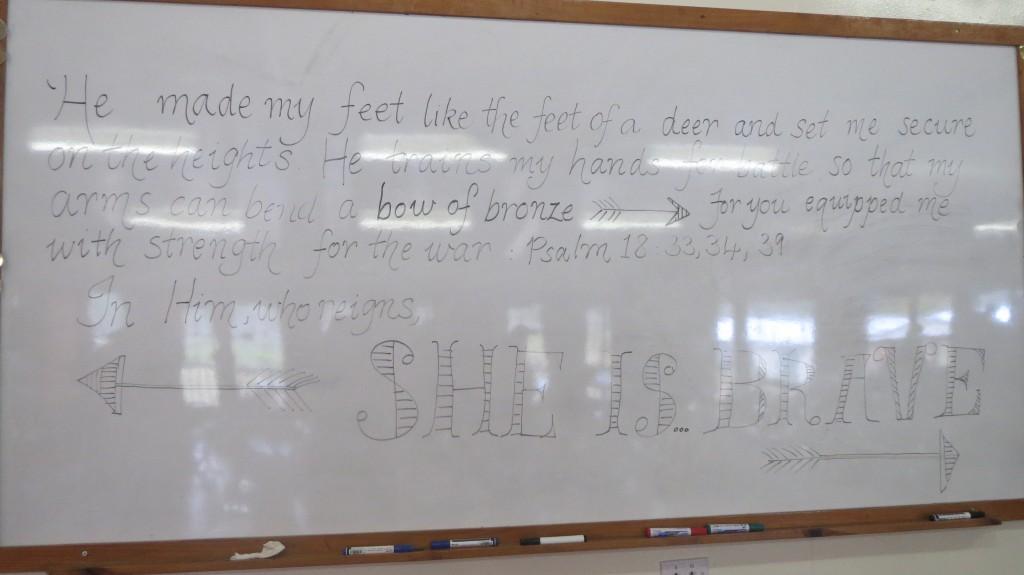 'He made my feet like the feet of a deer and set me secure
on the heights. He trains my hands for battle so that my
arms can bend a bow of bronze for you equipped me
with strength for the war : Psalm 18 : 33, 34, 39
In Him, who reigns,
SHE IS... BRAVE...